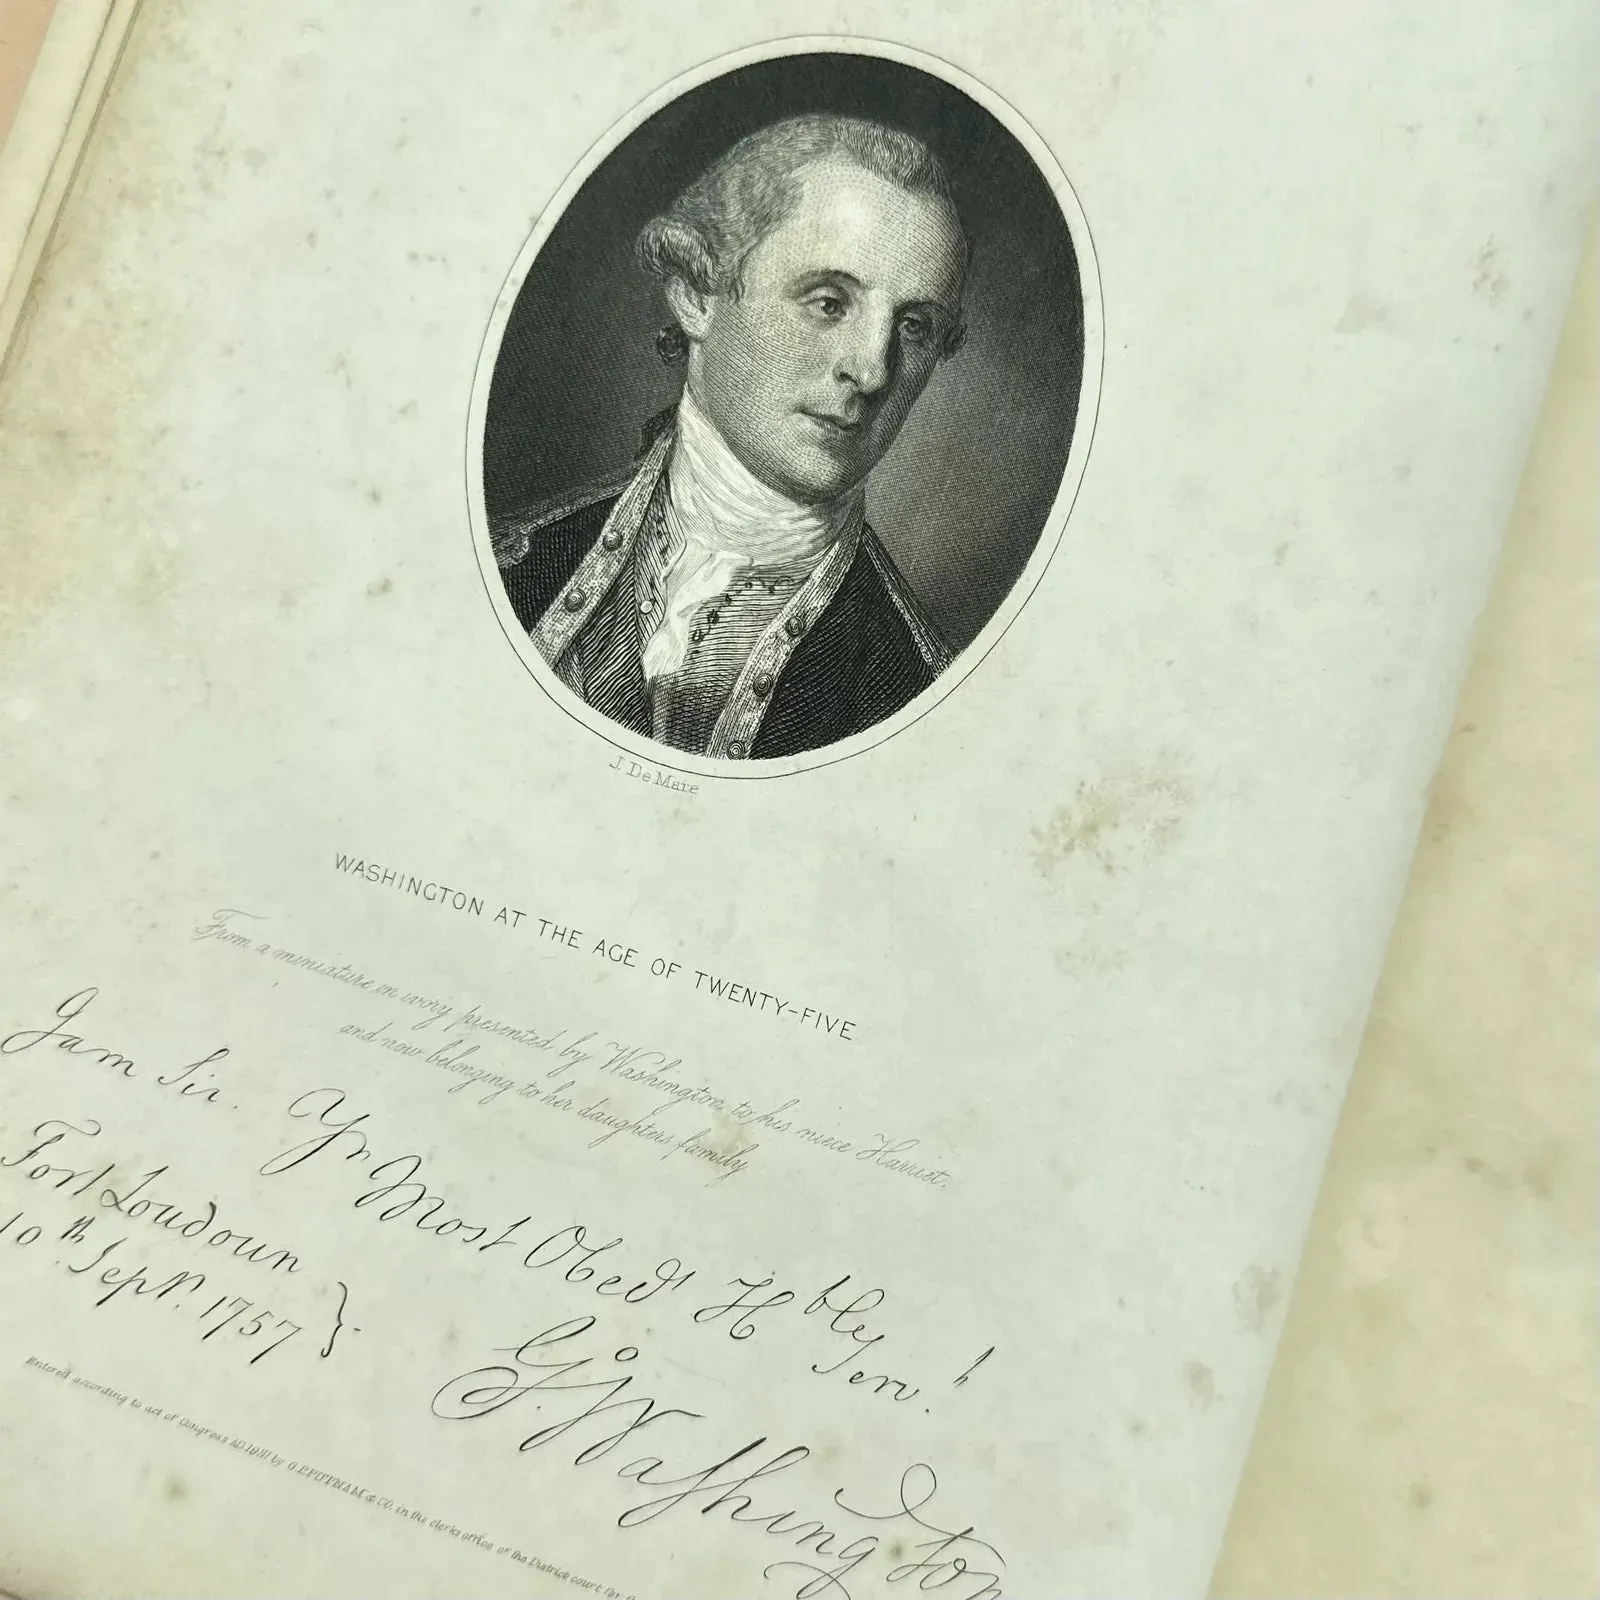 J. De Mare
WASHINGTON AT THE AGE OF TWENTY-FIVE
From a miniature on ivory presented by Washington to his niece Harriet.
and now belonging to her daughters family
I am Sir. Yr Most Obedt Hbly Servt
Fort Loudoun
10th Sept. 1757
Go. Washington
Entered according to act of Congress AD 1851 by G.P. PUTNAM & CO. in the clerks office of the District court for